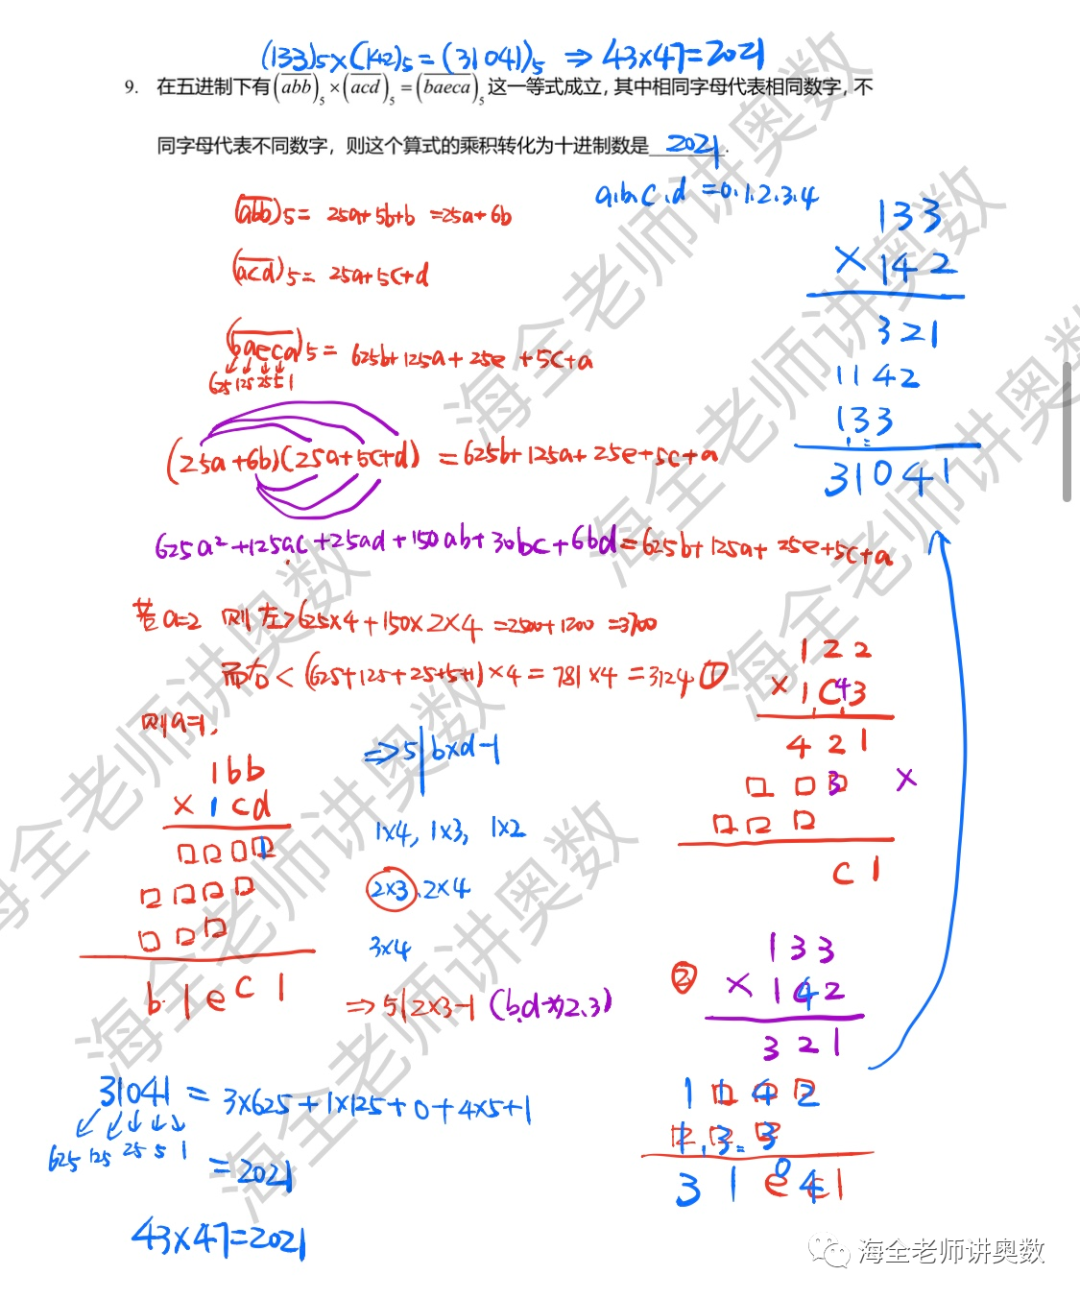 (133)₅×(142)₅=(31041)₅ ⇒ 43×47=2021
9. 在五进制下有(abb)₅×(acd)₅=(baeca)₅这一等式成立,其中相同字母代表相同数字,不
同字母代表不同数字,则这个算式的乘积转化为十进制数是 2021 .
a.b.c.d =0.1.2.3.4
(abb)₅= 25a+5b+b =25a+6b
(acd)₅= 25a+5c+d
(baeca)₅= 625b+125a+25e+5c+a
625 125 25 5 1
(25a+6b)(25a+5c+d) =625b+125a+25e+5c+a
625a²+125ac+25ad+150ab+30bc+6bd=625b+125a+25e+5c+a
若a=2 则左>625×4+150×2×4 =2500+1200 =3700
而右<(625+125+25+5+1)×4=781×4=3124
则a=1,
1bb
×1cd
□□□1
□□□□
□□□
b1ec1
⇒5|b×d-1
1×4, 1×3, 1×2
2×3, 2×4
3×4
⇒5|2×3-1 (b.d→2.3)
31041=3×625+1×125+0+4×5+1
625 125 25 5 1
=2021
43×47=2021
133
×142
321
1142
133
31041
①
122
×1C43
421
□□3 ×
□□□
c1
②
133
×142
321
1142
1.3.3
31e041
海全老师讲奥数
海全老师讲奥数
海全老师讲奥数
海全老师讲奥数
海全老师讲奥数
海全老师讲奥数
海全老师讲奥数